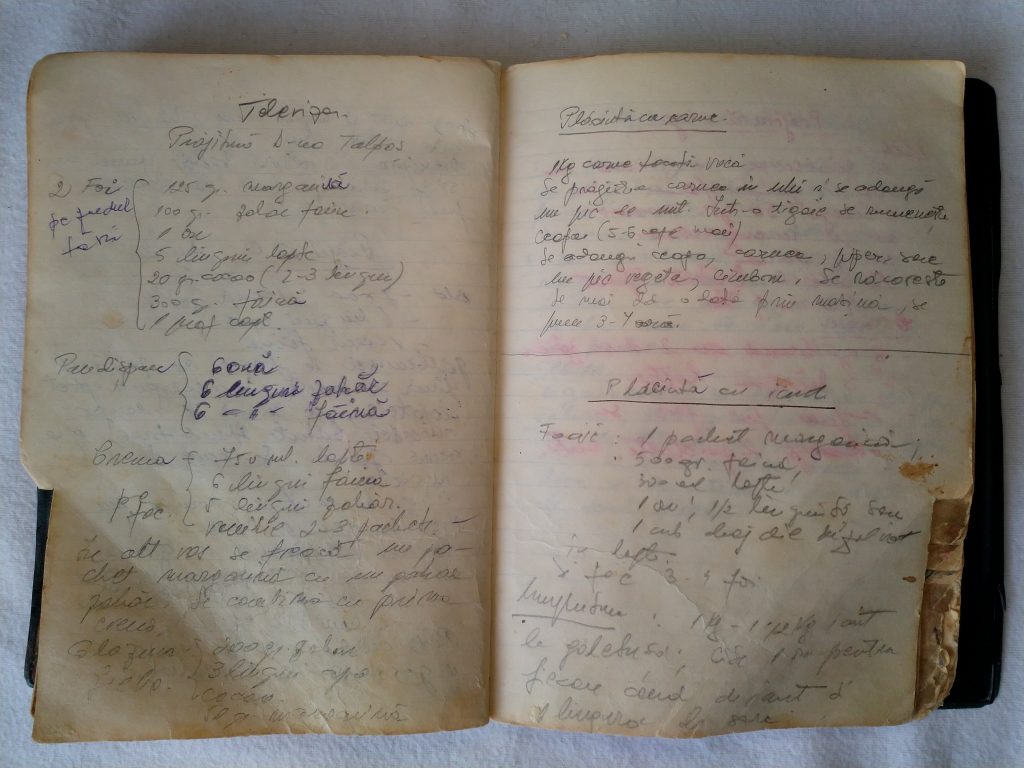 Prăjitură D-na Talpos
2) Foi
se pudră
125 gr. margarină
100 gr. zahăr
1 ou
5 linguri lapte
20 gr. cacao (2-3 linguri)
300 gr. făină
1 praf copt.
Pandișpan
6 ouă
6 linguri zahăr
6 -"- făină
Crema = 750 ml. lapte
6 linguri făină
5 linguri zahăr.
vanilie 2-3 pachete
în alt vas se freacă un pa-
chet margarină cu un pahar
zahăr, se cu prima
cremă.
Glazura 200 gr zahăr
3 linguri apă
cacao
50 gr margarină
Plăcintă cu carne.
1 Kg carne tocată vacă
Se prăjește carnea în ulei și se adaugă
un pic de unt. Într-o tigaie se rumenește
ceapa (5-6 cepe mari)
Se adaugă ceapa, carnea, piper, sare
un pic vegeta, cimbru, Se răcorește
se mai dă o dată prin mașină, se
pune 3-4 ouă.
Plăcintă cu
1 pachet margarină,
500 gr. făină,
300 ml lapte,
1 ou, 1/2 linguriță sare
1 cub drojdie
în lapte.
Se fac 3 4 foi
Umplutura : 1 Kg - 1 1/2 Kg
câte 1 ou pentru
fiecare
1 lingură de